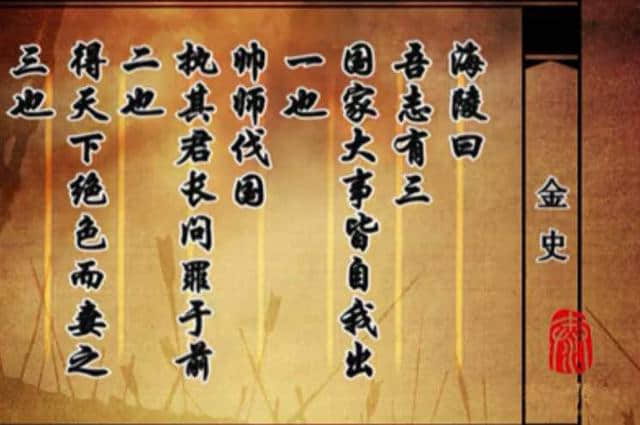 金史
海陵曰
吾志有三
国家大事皆自我出
一也
帅师伐国
执其君长问罪于前
二也
得天下绝色而妻之
三也